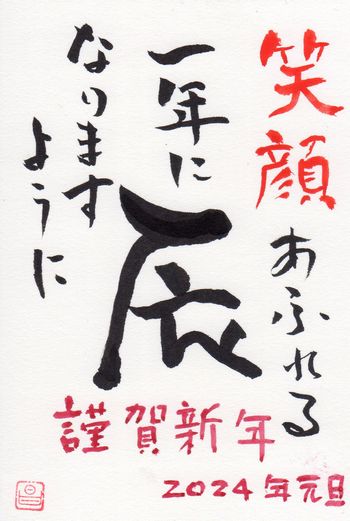 笑顔あふれる
一年に
辰
なります
ように
謹賀新年
2024年元旦